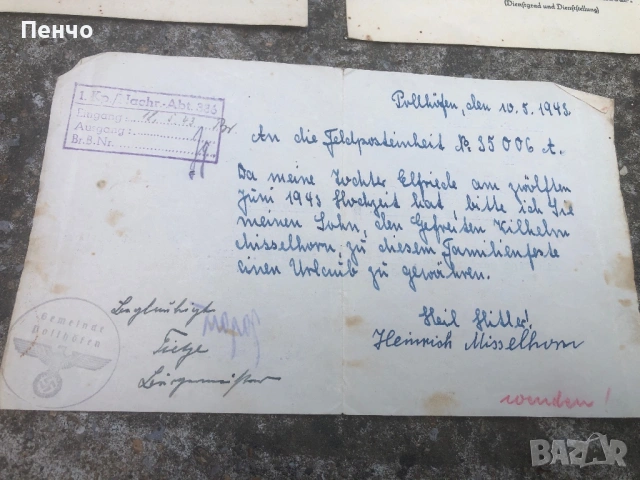 Пенчо
(Dienstgrad und Dienststellung)
1. Kp./Nachr.-Abt. 335
Eingang: 16.5.43
Ausgang:
Br.B.Nr.
Pollhöfen, den 10.5.1943.
An die Feldposteinheit № 35006 A.
Da meine Tochter Elfriede am zwölften
Juni 1943 Hochzeit hat, bitte ich Sie
meinen Sohn, den Gefreiten Wilhelm
Misselhorn, zu diesem Familienfeste
einen Urlaub zu gewähren.
Heil Hitler!
Heinrich Misselhorn
Beglaubigt
Tietze
Bürgermeister
Gemeinde
Pollhöfen
wenden!
BAZAR
bg